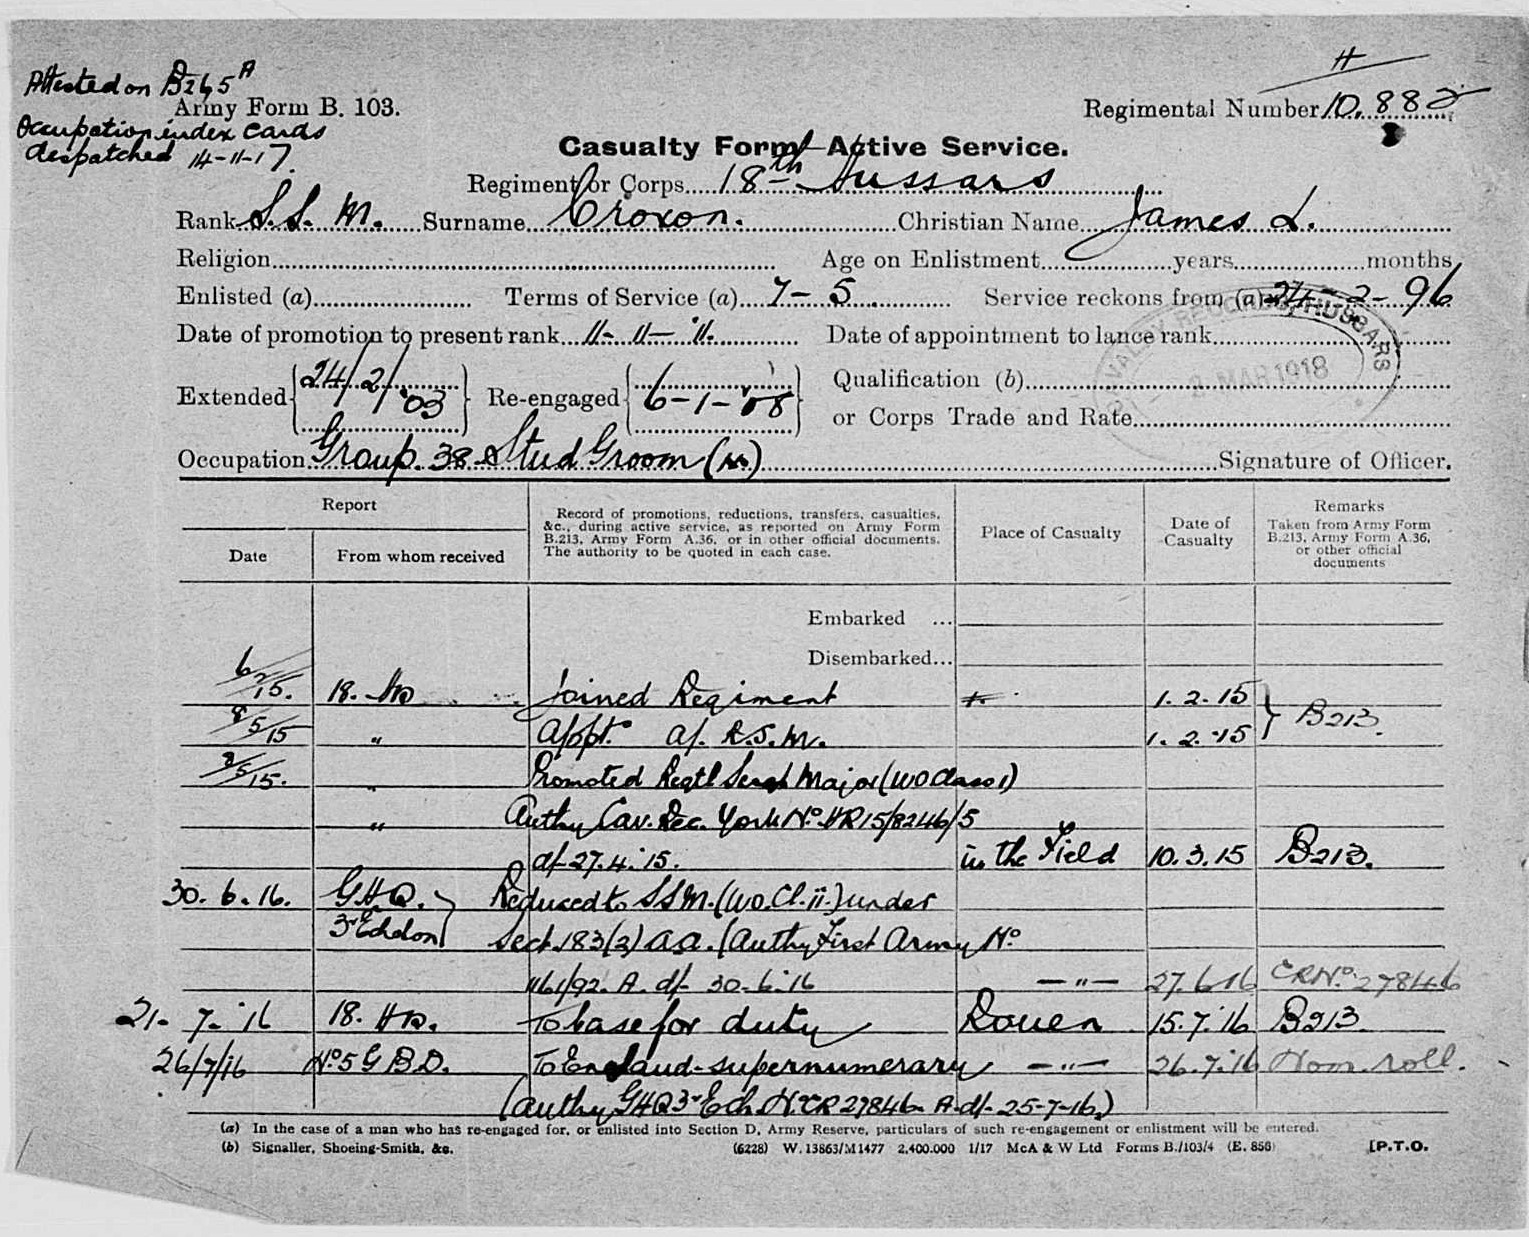 Attested on B265A
Army Form B. 103.
Occupation index cards
despatched 14-11-17.
H
Regimental Number 10.882
Casualty Form—Active Service.
Regiment or Corps 18th Hussars
Rank S.S.M. Surname Croxon. Christian Name James L.
Religion Age on Enlistment years months
Enlisted (a) Terms of Service (a) 7-5 Service reckons from (a) 24-2-96
Date of promotion to present rank 11-11-'11. Date of appointment to lance rank
Extended 24/2/'03 Re-engaged 6-1-'08 Qualification (b)
or Corps Trade and Rate
CAVALRY RECORDS, HUSSARS
MAR 1918
Occupation Group 38 Stud Groom Signature of Officer.
Report
Date
From whom received
Record of promotions, reductions, transfers, casualties,
&c., during active service, as reported on Army Form
B.213, Army Form A.36, or in other official documents.
The authority to be quoted in each case.
Place of Casualty
Date of
Casualty
Remarks
Taken from Army Form
B.213, Army Form A.36,
or other official
documents
Embarked ...
Disembarked...
6/2/15. 18. Hrs Joined Regiment 1.2.15 B213.
8/5/15 " Appt. a/. R.S.M. 1.2.15
8/5/15. " Promoted Regtl Sergt Major (WO Class 1)
" Authy Cav. Rec. York No. HR15/8246/5
d/- 27.4.'15. in the Field 10.3.15 B213.
30.6.16. G.H.Q. Reduced to SSM. (WO. Cl. ii.) under
3rd Echelon Sect. 183(2) A.A. (Authy First Army No
1161/92. A. d/- 30-6-'16 —"— 27.6.16 CR No. 27846
21-7-'16 18. Hrs. To base for duty Rouen 15.7.'16 B213
26/7/16 No 5 G B.D. To England-supernumerary —"— 26.7.'16 Nom. roll.
(Authy GHQ 3rd Ech. No CR 27846. A. d/- 25-7-16.)
(a) In the case of a man who has re-engaged for, or enlisted into Section D, Army Reserve, particulars of such re-engagement or enlistment will be entered.
(b) Signaller, Shoeing-Smith, &c. (6228) W. 13863/M1477 2,400.000 1/17 McA & W Ltd Forms B./103/4 (E. 856) [P.T.O.